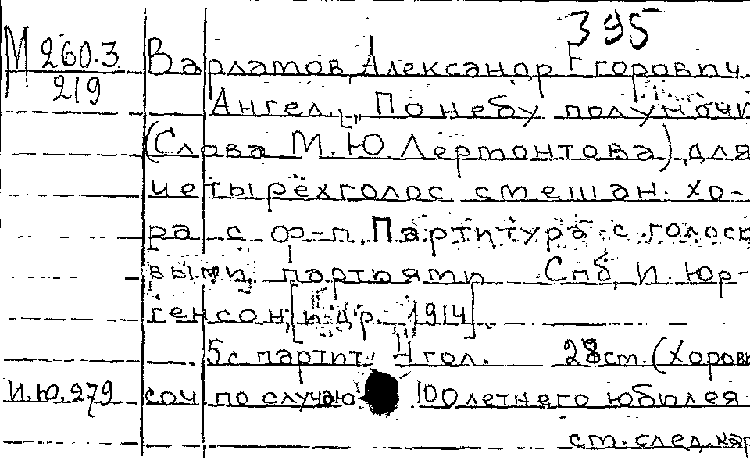 395
М 260.3 Варламов, Александр Егорович.
219 Ангел. "По небу полуночи
(Слова М.Ю. Лермонтова) для
четырёхголос. смешан. хо-
ра с ф-п. Партитура с голосо
выми партиями Спб, И. Юр-
генсон, [и др. 1914]
5 с. партит. 4 гол. 28 ст. (Хоров
И.Ю.279 соч по случаю 100летнего юбилея
ст. след. кар